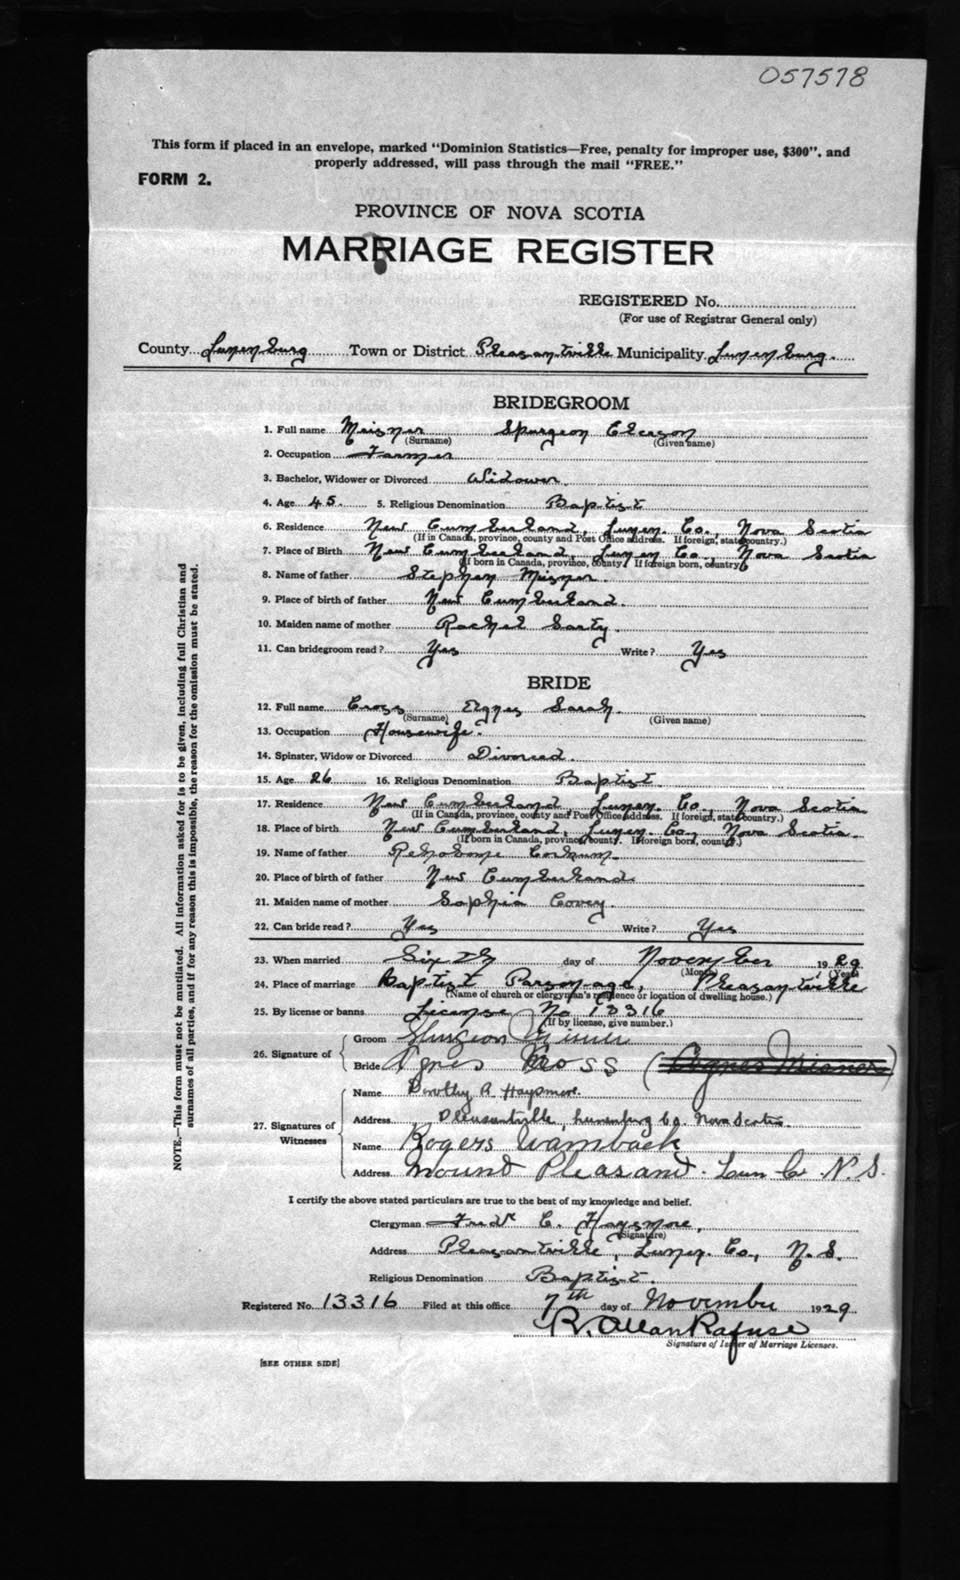 057578
This form if placed in an envelope, marked "Dominion Statistics—Free, penalty for improper use, $300", and
properly addressed, will pass through the mail "FREE."
FORM 2.
PROVINCE OF NOVA SCOTIA
MARRIAGE REGISTER
REGISTERED No.
(For use of Registrar General only)
County Lunenburg Town or District Pleasantville Municipality Lunenburg.
BRIDEGROOM
1. Full name Meisner Spurgeon
(Surname) (Given name)
2. Occupation Farmer
3. Bachelor, Widower or Divorced Widower
4. Age 45. 5. Religious Denomination Baptist
6. Residence New Cumberland, Lunen. Co., Nova Scotia
(If in Canada, province, county and Post Office address. If foreign, state country.)
7. Place of Birth New Cumberland, Lunen Co., Nova Scotia
(If born in Canada, province, county. If foreign born, country.)
8. Name of father Stephen Misner.
9. Place of birth of father New Cumberland.
10. Maiden name of mother Rachel Sarty.
11. Can bridegroom read? Yes Write? Yes
BRIDE
12. Full name Cross Agnes Sarah.
(Surname) (Given name)
13. Occupation Housewife.
14. Spinster, Widow or Divorced Divorced.
15. Age 26 16. Religious Denomination Baptist.
17. Residence New Cumberland, Lunen. Co., Nova Scotia
(If in Canada, province, county and Post Office address. If foreign, state country.)
18. Place of birth New Cumberland, Lunen. Co., Nova Scotia.
(If born in Canada, province, county. If foreign born, country.)
19. Name of father Corkum.
20. Place of birth of father New Cumberland.
21. Maiden name of mother Sophia Covey.
22. Can bride read? Yes Write? Yes
23. When married Sixth day of November 1929
(Month) (Year)
24. Place of marriage Baptist Parsonage, Pleasantville
(Name of church or clergyman's residence or location of dwelling house.)
25. By license or banns License No 13316
(If by license, give number.)
26. Signature of
Groom Spurgeon Misner
Bride Agnes (Agnes Misner)
27. Signatures of Witnesses
Name Dorothy A. Haysmore.
Address Pleasantville, Lunenburg Co. Nova Scotia.
Name Rogers Wamback
Address Mound Pleasand. Lun Co N.S.
I certify the above stated particulars are true to the best of my knowledge and belief.
Clergyman Fredk C. Haysmore,
(Signature)
Address Pleasantville, Lunen. Co., N.S.
Religious Denomination Baptist.
Registered No. 13316 Filed at this office 7th day of November 1929
R. Allan Rafuse
Signature of Issuer of Marriage Licenses.
[SEE OTHER SIDE]
NOTE.—This form must not be mutilated. All information asked for is to be given, including full Christian and
surnames of all parties, and if for any reason this is impossible, the reason for the omission must be stated.